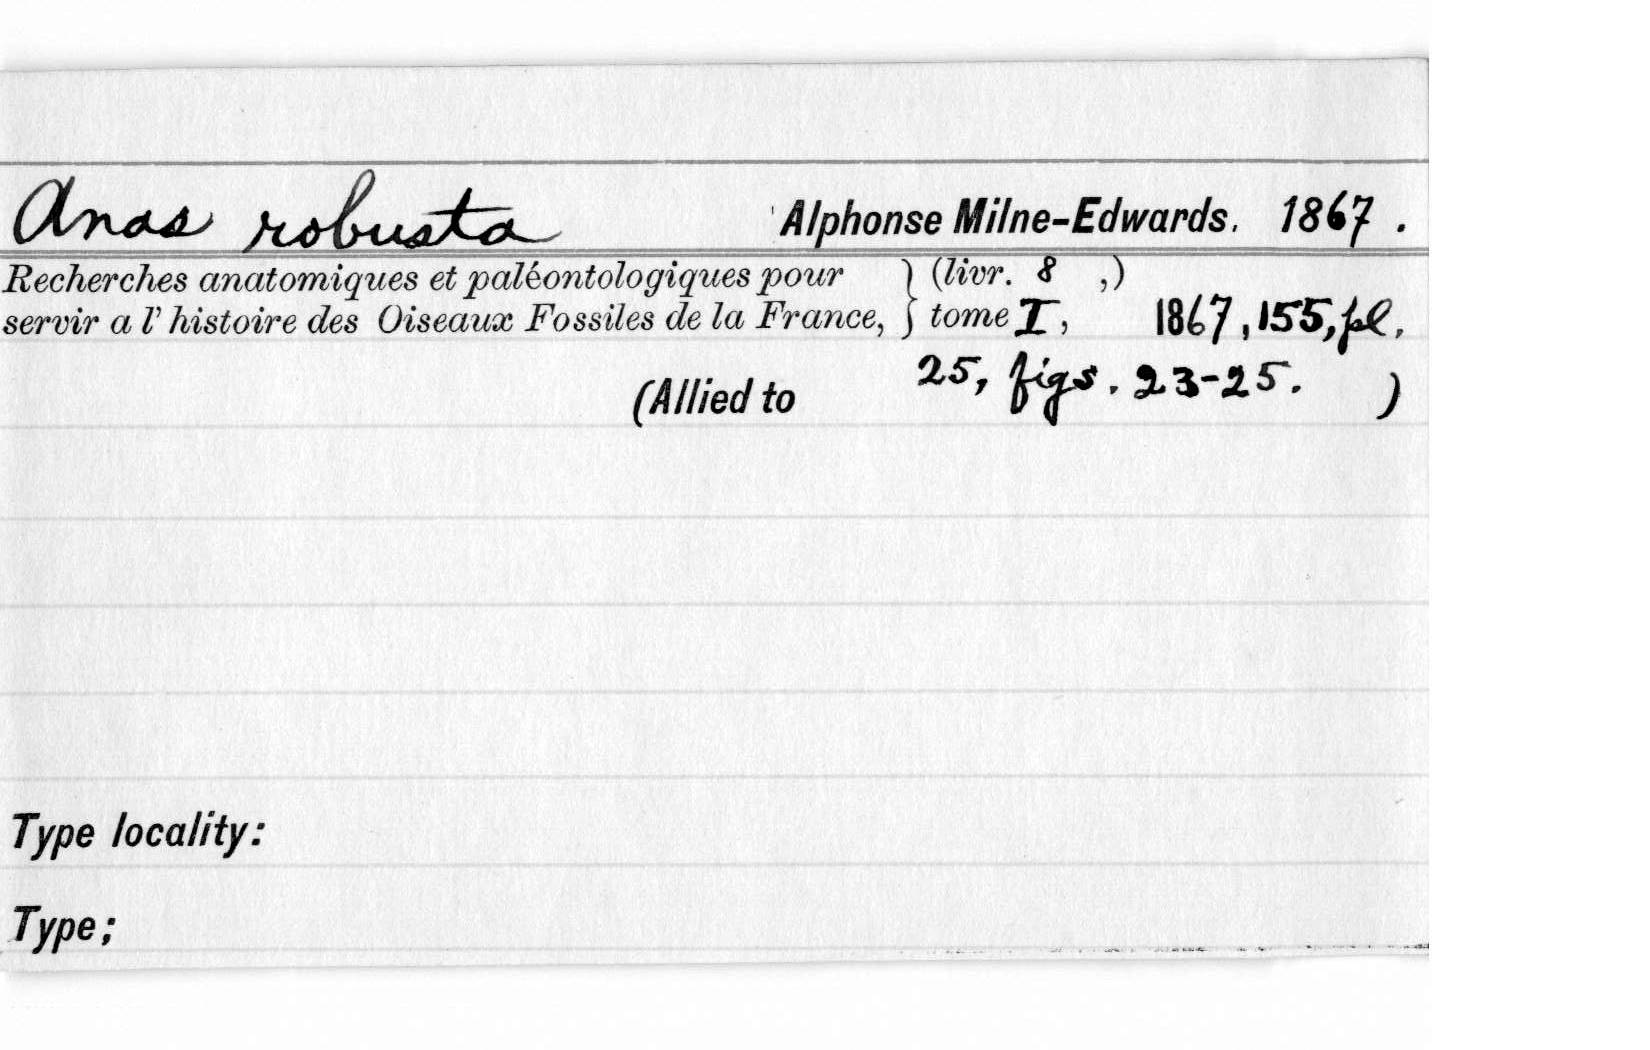 Anas robusta Alphonse Milne-Edwards. 1867.
Recherches anatomiques et paléontologiques pour } (livr. 8 ,)
servir a l' histoire des Oiseaux Fossiles de la France, } tome I, 1867, 155, pl.
25, figs. 23-25.
(Allied to )
Type locality:
Type;